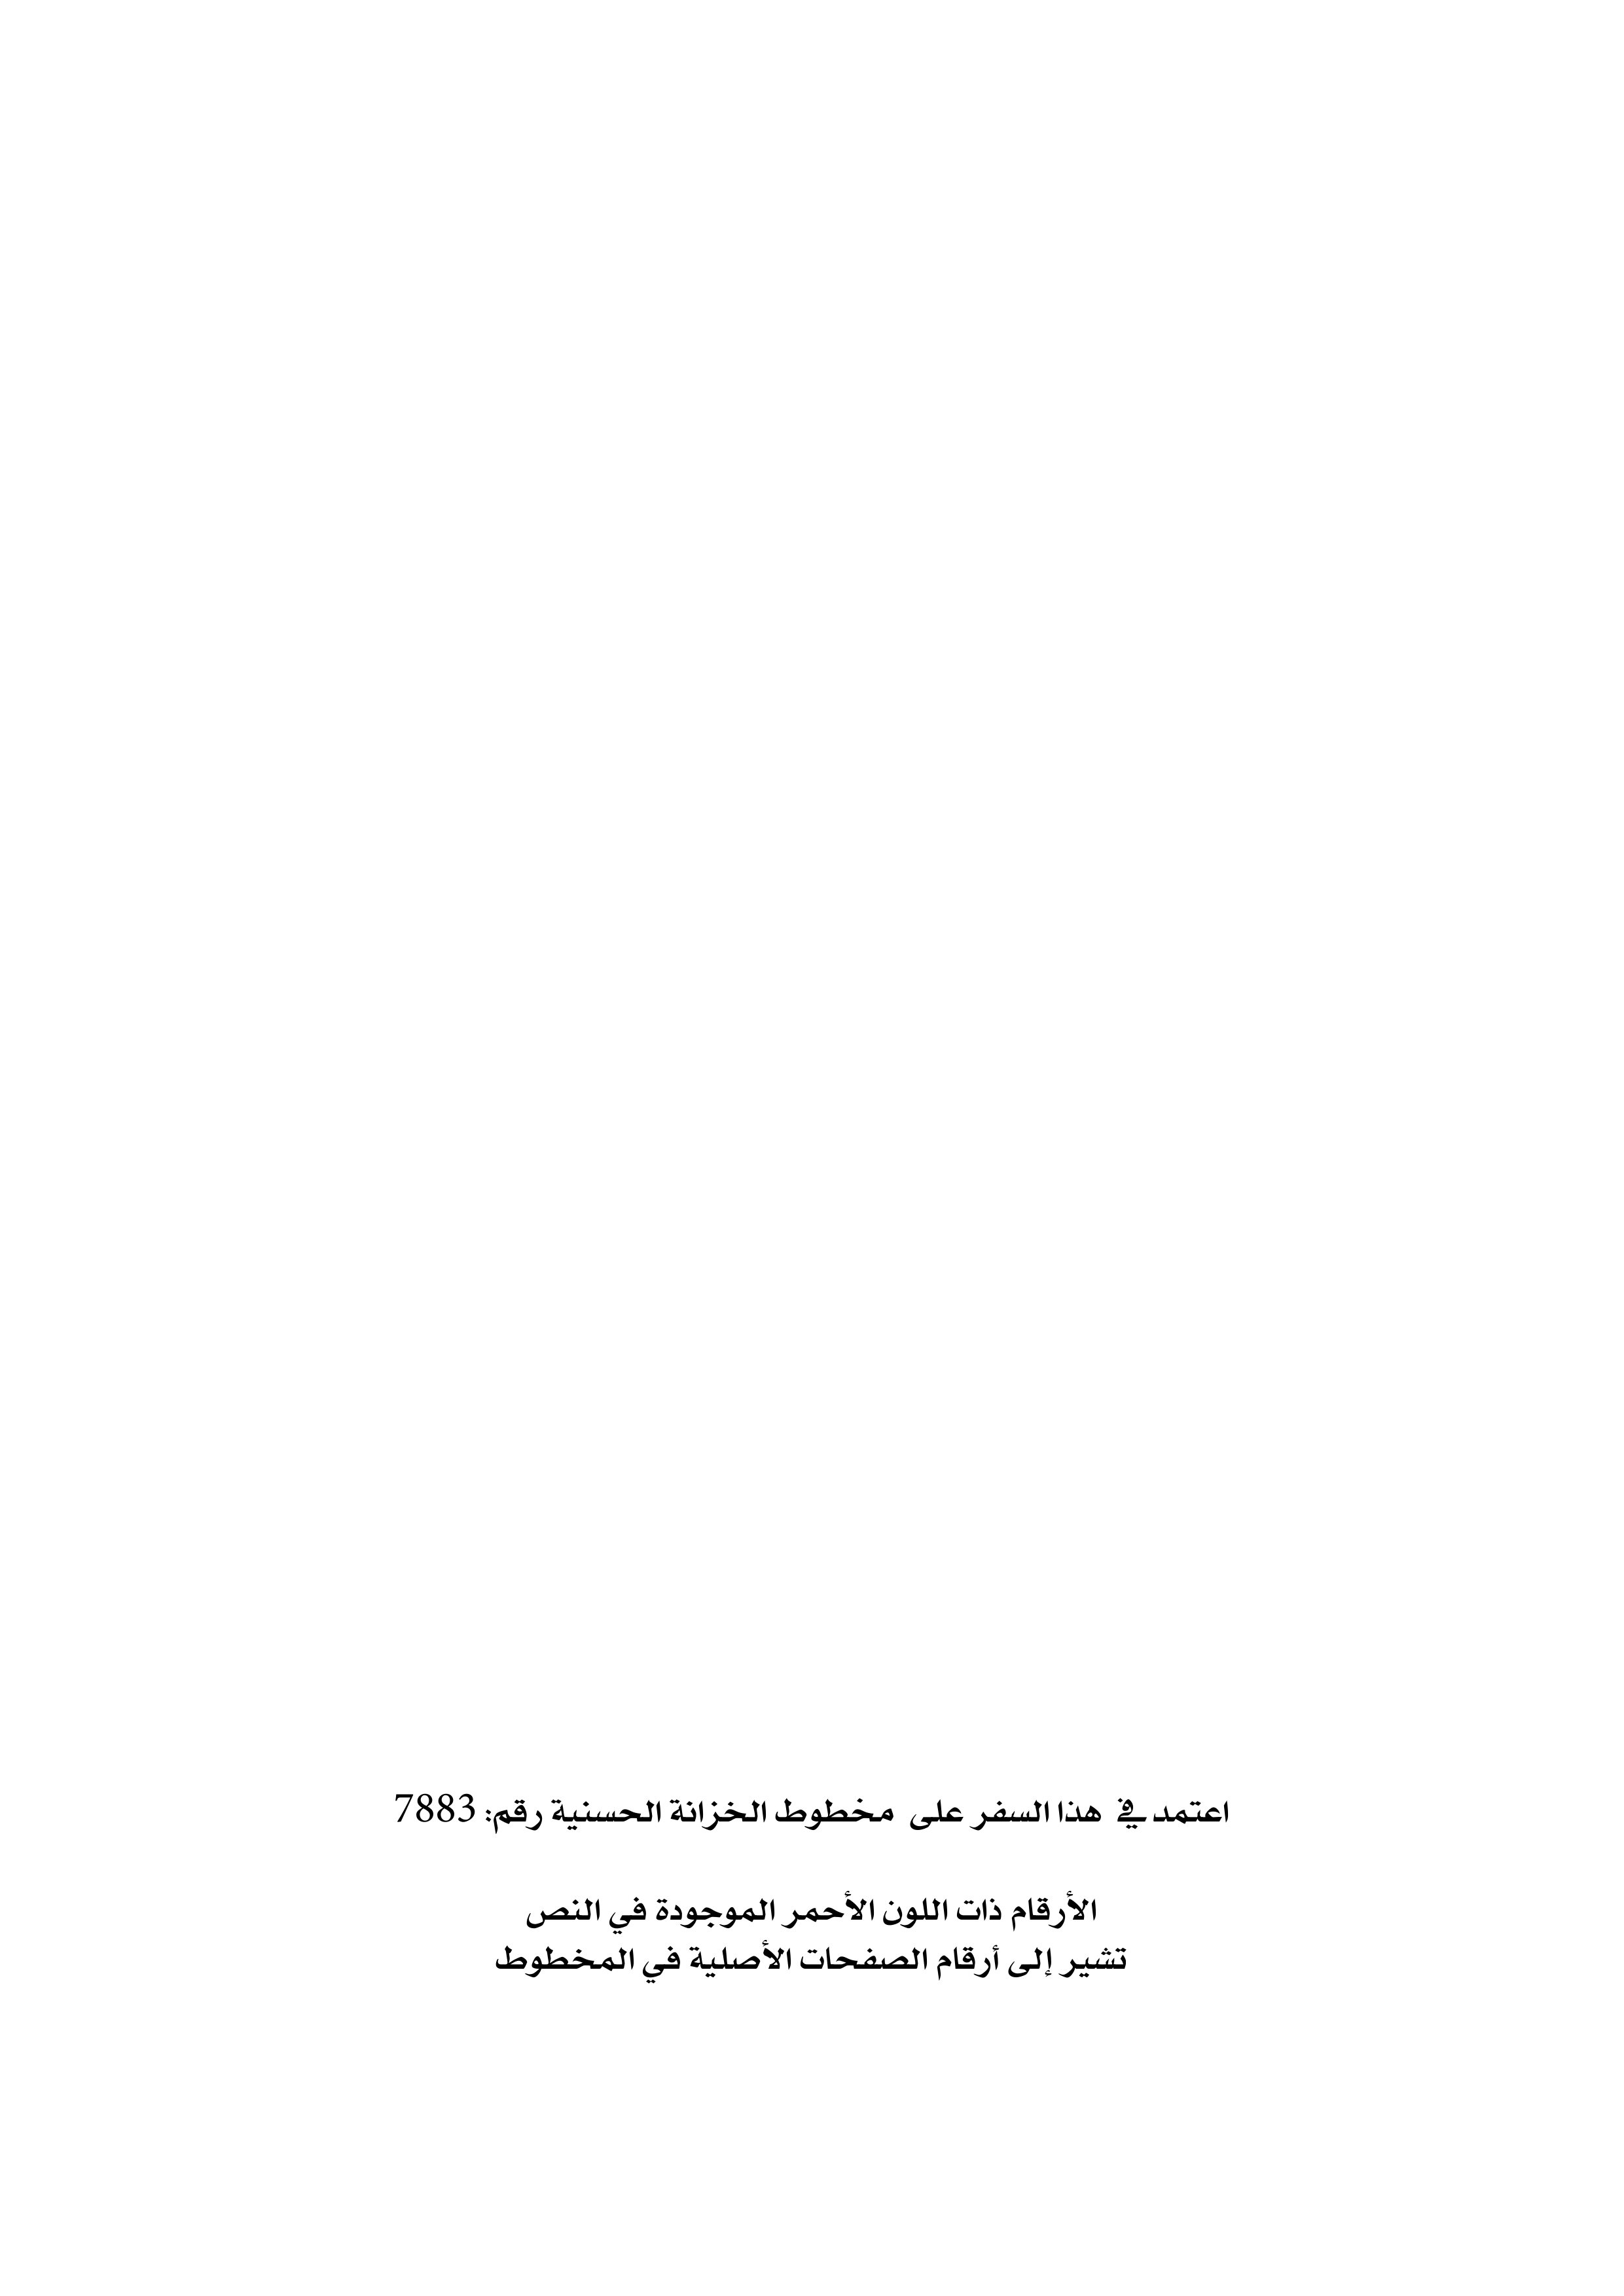 اعتمد في هذا السفر على مخطوط الخزانة الحسنية رقم: 7883
الأرقام ذات اللون الأحمر الموجودة في النص
تشير إلى أرقام الصفحات الأصلية في المخطوط